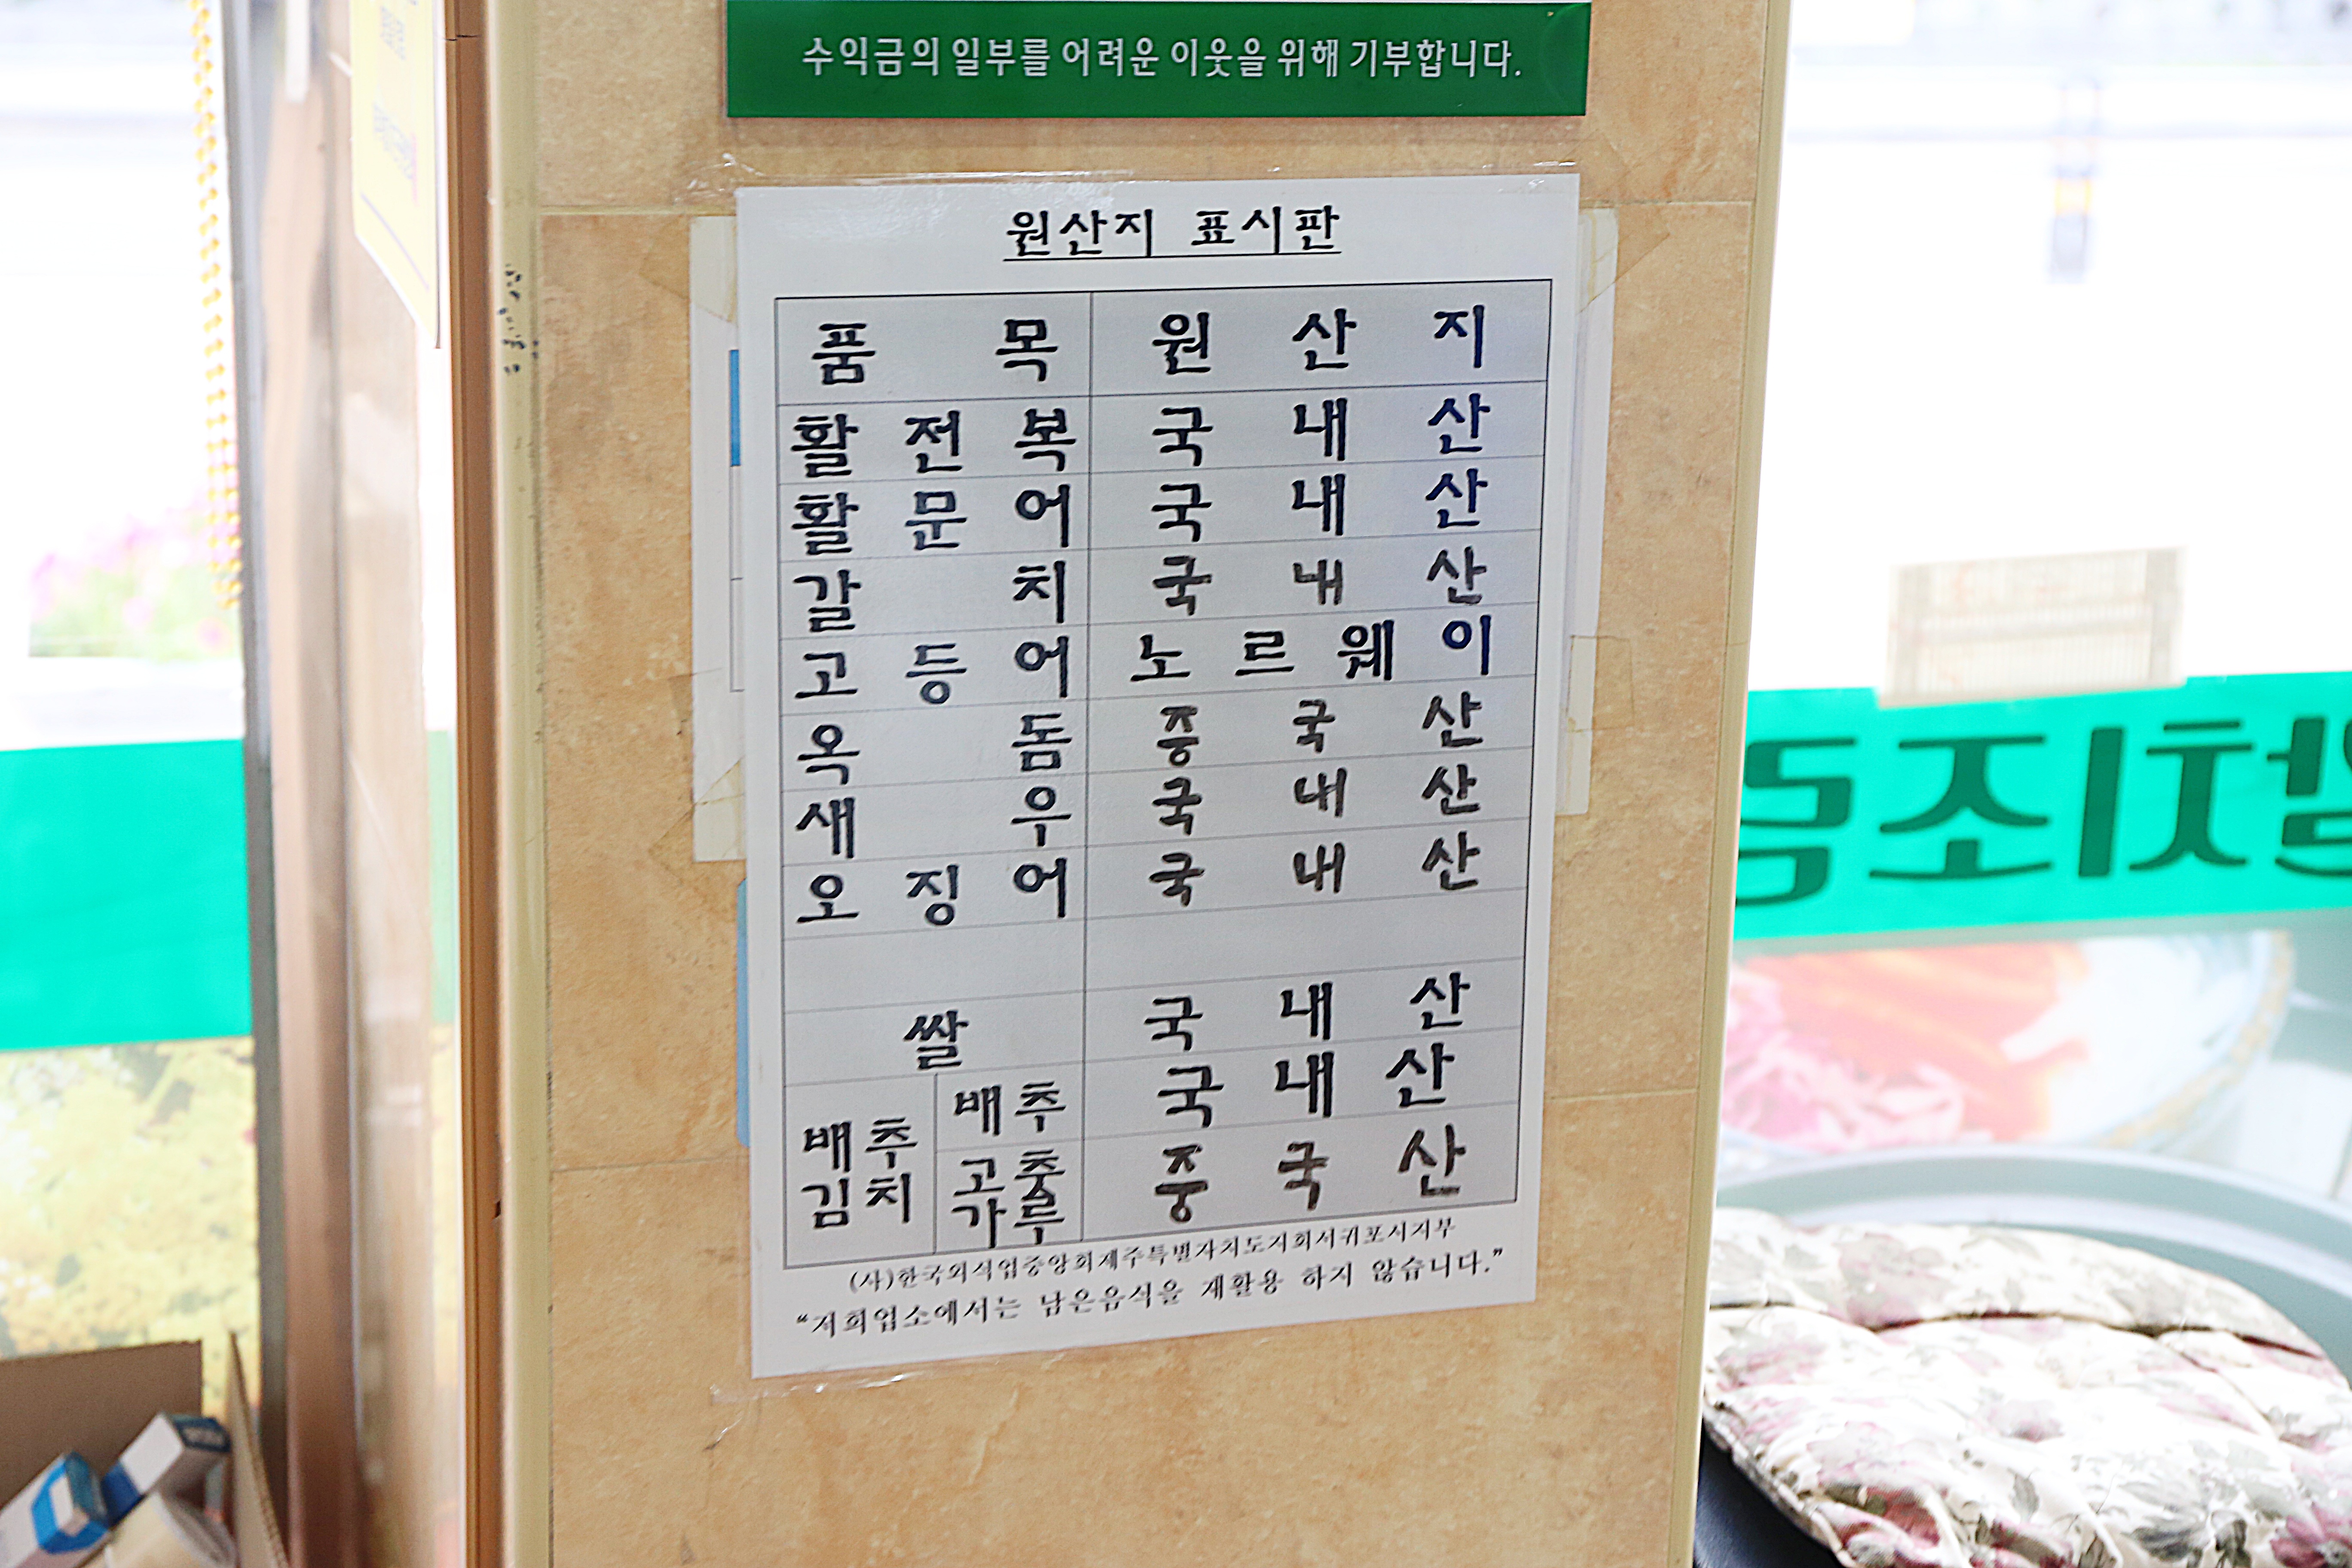 수익금의 일부를 어려운 이웃을 위해 기부합니다.
원산지 표시판
품목 원산지
활전복 국내산
활문어 국내산
갈치 국내산
고등어 노르웨이
옥돔 중국산
새우 국내산
오징어 국내산
쌀 국내산
배추김치 배추 국내산
고춧가루 중국산
(사)한국외식업중앙회제주특별자치도지회서귀포시지부
"저희업소에서는 남은음식을 재활용 하지 않습니다."